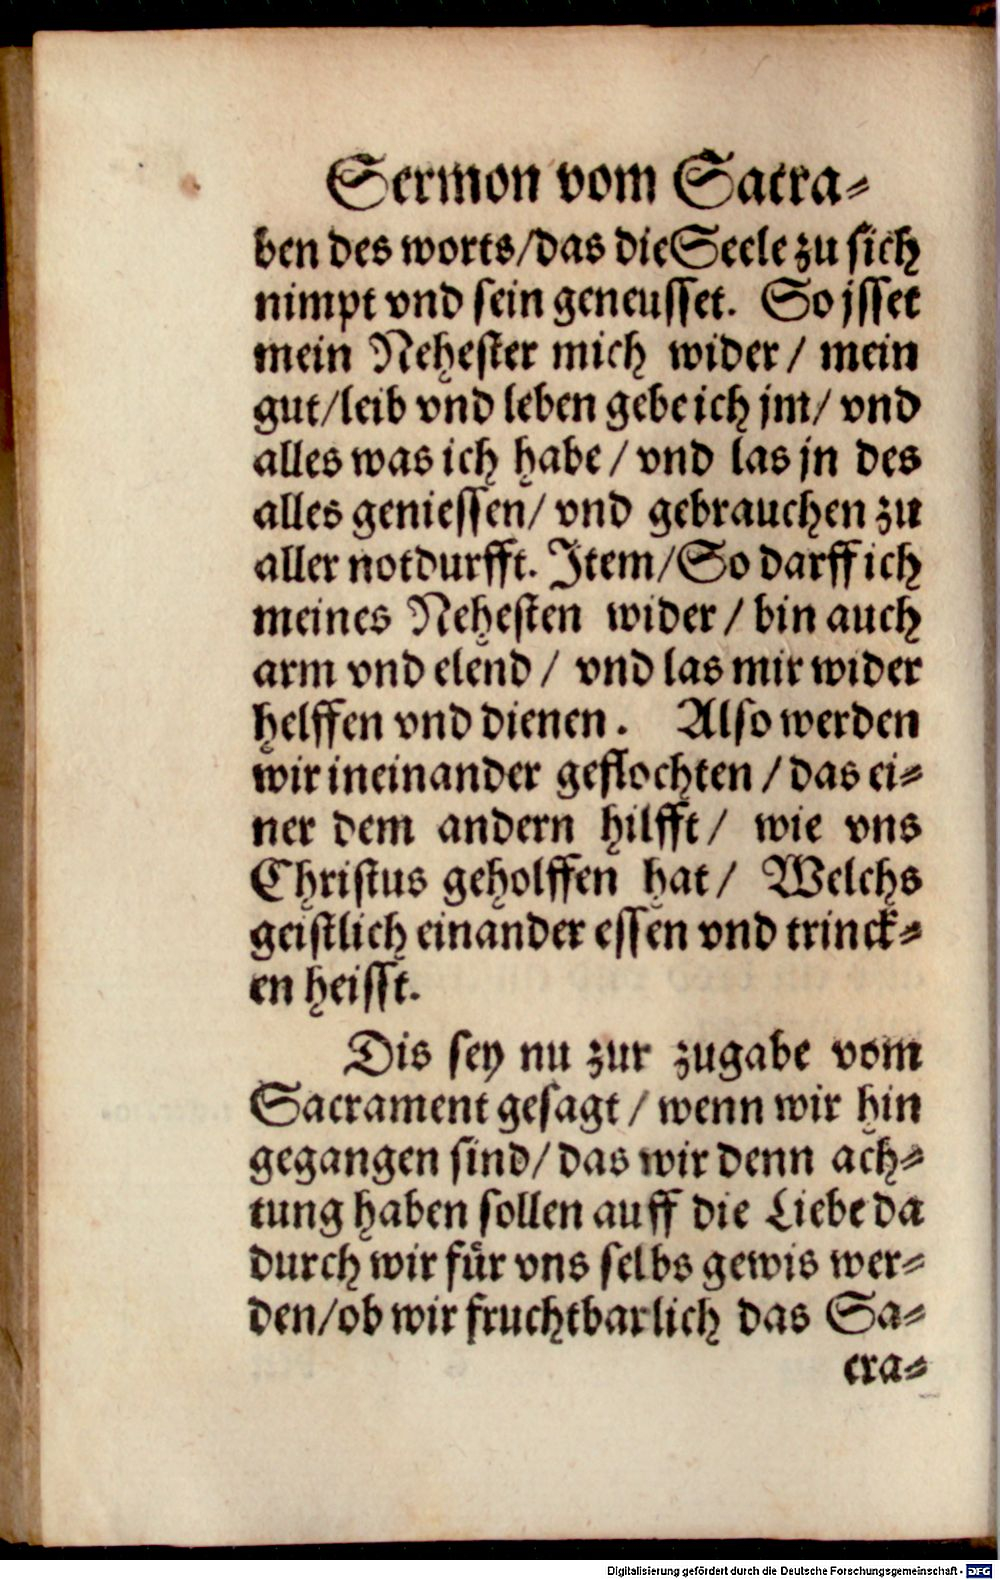 Sermon vom Sacra⸗
ben des worts/das die Seele zu sich
nimpt vnd sein geneusset. So jsset
mein Nehester mich wider/ mein
gut/leib vnd leben gebe ich jm/ vnd
alles was ich habe/ vnd las jn des
alles geniessen/ vnd gebrauchen zu
aller notdurfft. Item/So darff ich
meines Nehesten wider/ bin auch
arm vnd elend/ vnd las mir wider
helffen vnd dienen. Also werden
wir ineinander geflochten/das ei⸗
ner dem andern hilfft/ wie vns
Christus geholffen hat/ Welchs
geistlich einander essen vnd trinck⸗
en heisst.
Dis sey nu zur zugabe vom
Sacrament gesagt/ wenn wir hin
gegangen sind/ das wir denn ach⸗
tung haben sollen auff die Liebe da
durch wir für vns selbs gewis wer⸗
den/ob wir fruchtbarlich das Sa⸗
cra⸗
Digitalisierung gefördert durch die Deutsche Forschungsgemeinschaft - DFG